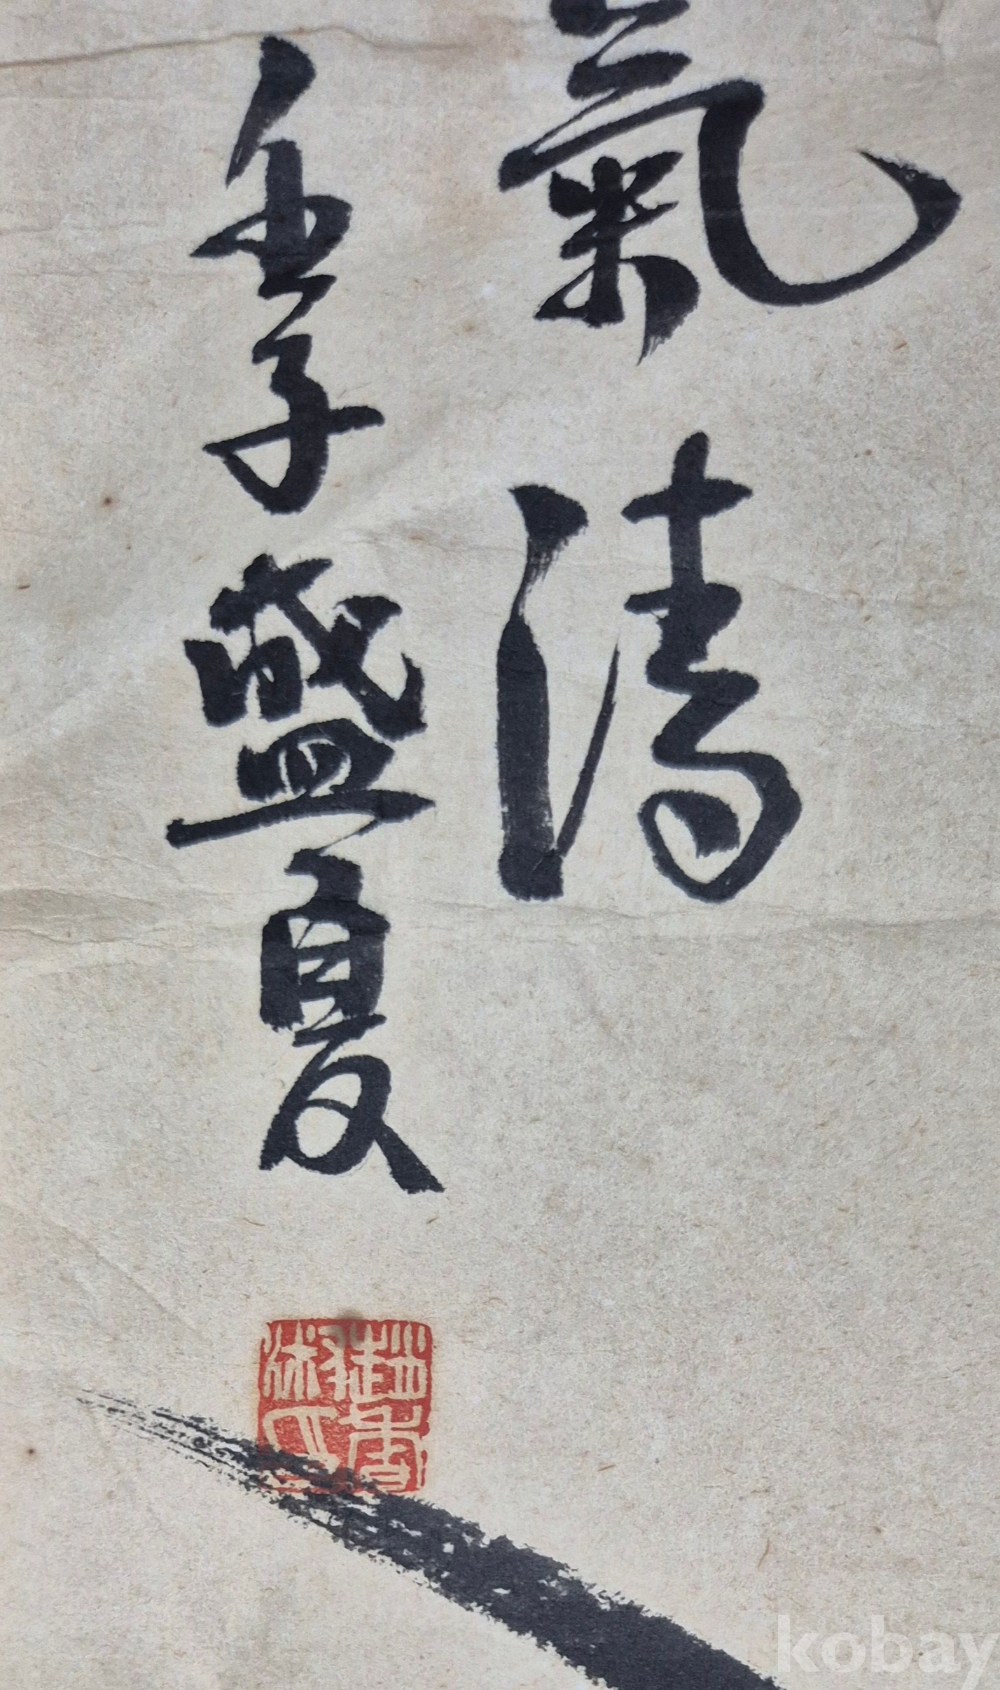 氣清
壬子盛夏
kobay